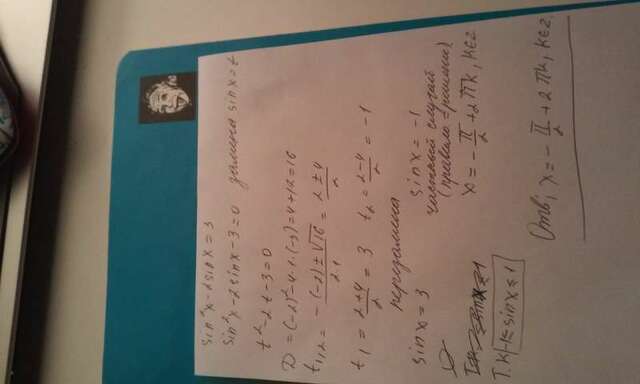 sin²x-2sinx=3
sin²x-2sinx-3=0 замена sinx=t
t²-2t-3=0
D=(-2)²-4·1·(-3)=4+12=16
t₁,₂=\frac{-(-2)±√16}{2·1}=\frac{2±4}{2}
t₁=\frac{2+4}{2}=3 t₂=\frac{2-4}{2}=-1
перезамена
sinx=3 sinx=-1
частный случай
(правило решения)
x=-\frac{π}{2}+2πk, k∈z
т.к -1≤sinx≤1
Отв, x=-\frac{π}{2}+2πk, k∈z.